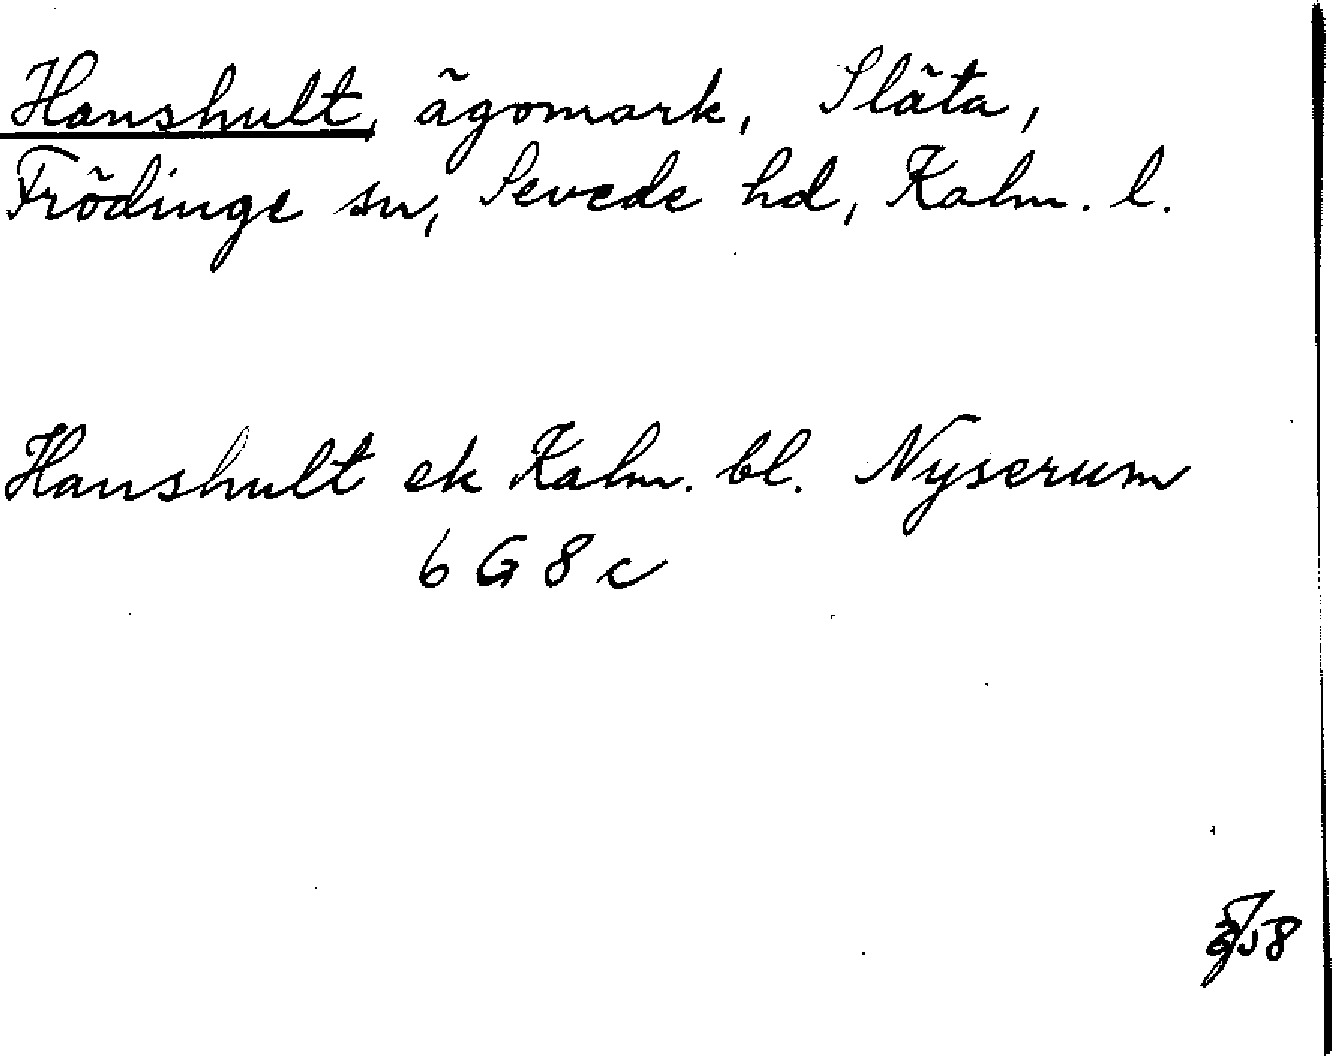 Hanshult, ägomark, Släta,
Frödinge sn, Sevede hd, Kalm. l.
Hanshult ek Kalm. bl. Nyserum
6 G 8 c